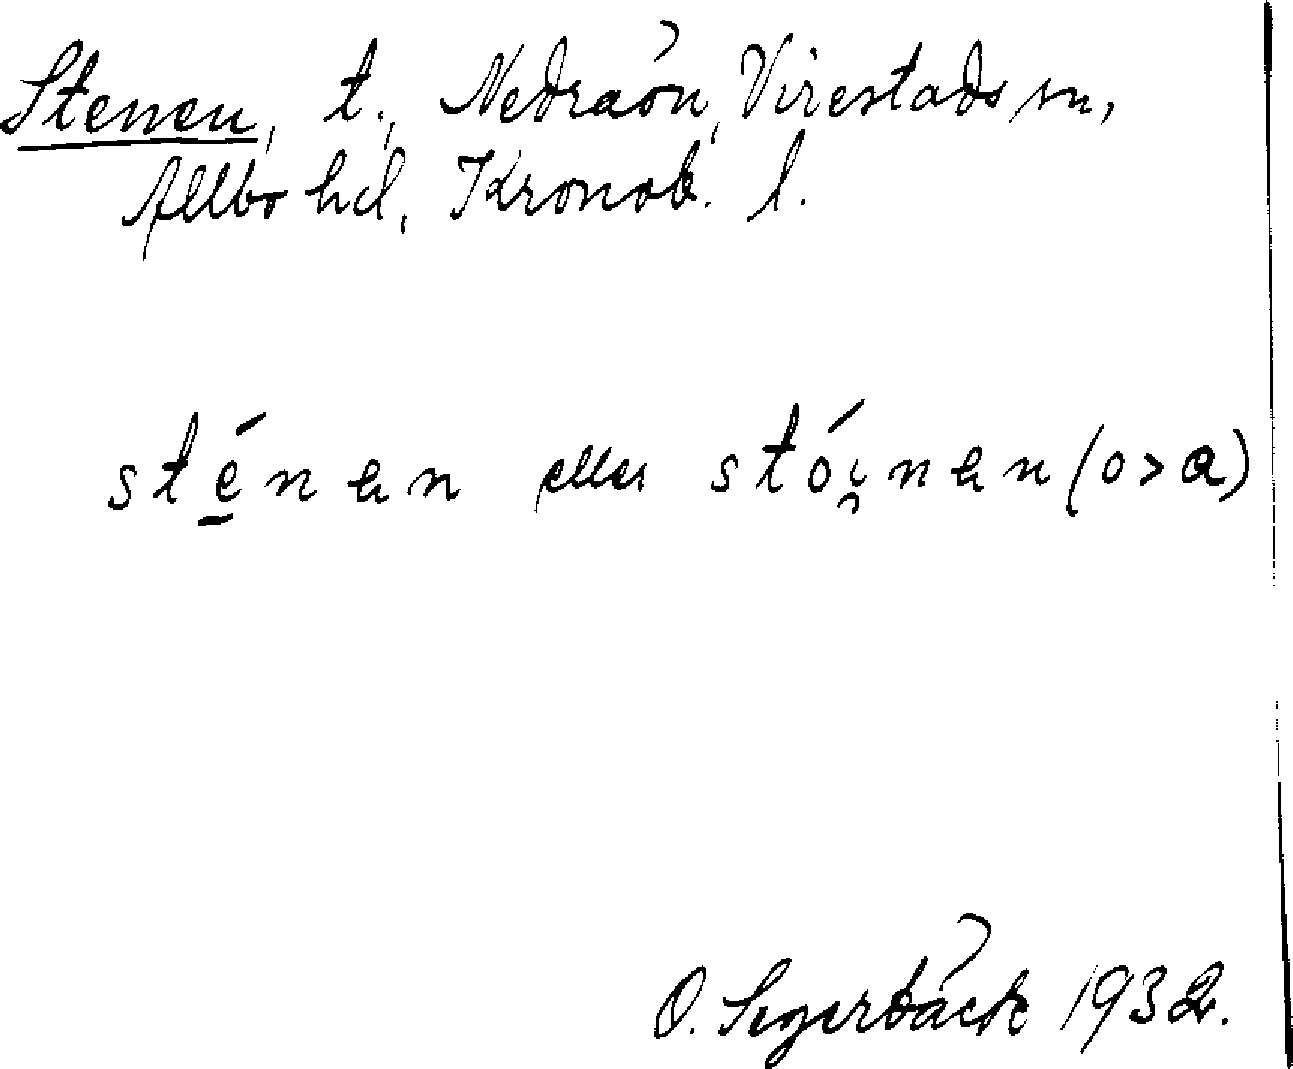 Stenen, t., Nedraön, Virestads sn,
Allbo hd, Kronob. l.
sténen eller stói̯nen (o>a)
O. Segerbäck 1932.